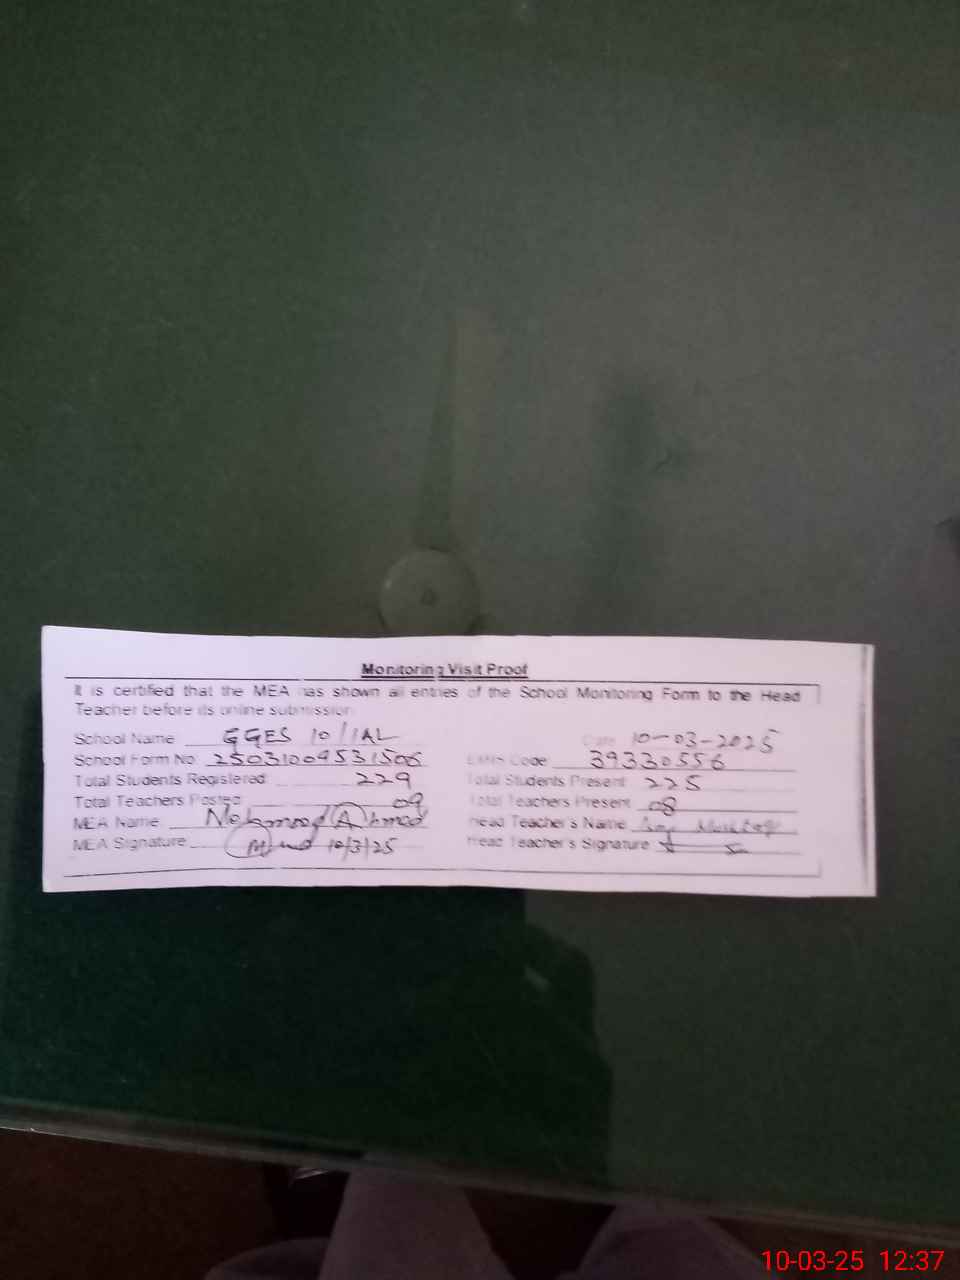 Monitoring Visit Proof
It is certified that the MEA has shown all entries of the School Monitoring Form to the Head
Teacher before its online submission
School Name GGES 10/1AL Date 10-03-2025
School Form No. 25031009531506 EMIS Code 39330556
Total Students Registered 229 Total Students Present 225
Total Teachers Posted 09 Total Teachers Present 08
MEA Name Mehmood Ahmad Head Teacher's Name
MEA Signature 10/3/25 Head Teacher's Signature
10-03-25 12:37